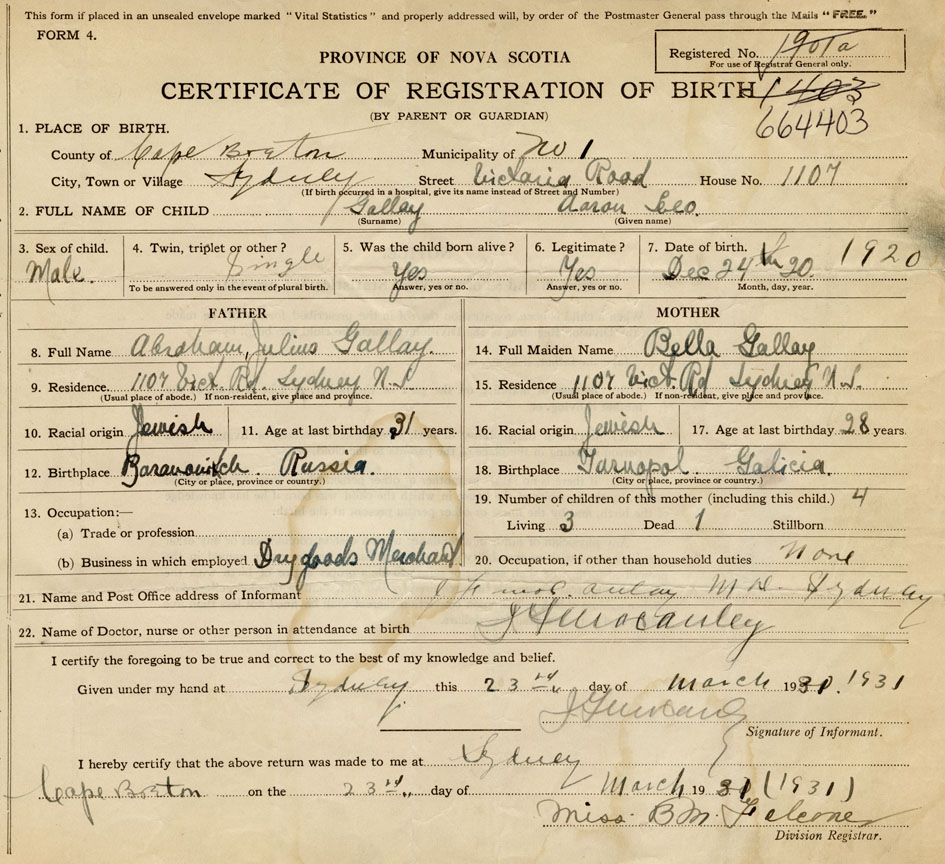 This form if placed in an unsealed envelope marked "Vital Statistics" and properly addressed will, by order of the Postmaster General pass through the Mails "FREE."
FORM 4.
PROVINCE OF NOVA SCOTIA
Registered No. 1901a
For use of Registrar General only.
CERTIFICATE OF REGISTRATION OF BIRTH 1403
(BY PARENT OR GUARDIAN)
664403
1. PLACE OF BIRTH.
County of Cape Breton Municipality of No 1
City, Town or Village Sydney Street Victoria Road House No. 1107
(If birth occurred in a hospital, give its name instead of Street and Number)
2. FULL NAME OF CHILD Gallay Aaron Leo.
(Surname) (Given name)
3. Sex of child. 4. Twin, triplet or other? 5. Was the child born alive? 6. Legitimate? 7. Date of birth. 1920
Male. Single Yes Yes Dec 24th 20.
To be answered only in the event of plural birth. Answer, yes or no. Answer, yes or no. Month, day, year.
FATHER MOTHER
8. Full Name Abraham Julius Gallay. 14. Full Maiden Name Bella Gallay
9. Residence. 1107 Vict. Rd. Sydney N.S 15. Residence 1107 Vict. Rd Sydney N.S.
(Usual place of abode.) If non-resident, give place and province. (Usual place of abode.) If non-resident, give place and province.
10. Racial origin Jewish 11. Age at last birthday 31 years. 16. Racial origin Jewish 17. Age at last birthday 28 years
12. Birthplace Baranovitch. Russia. 18. Birthplace Tarnopol Galicia.
(City or place, province or country.) (City or place, province or country.)
19. Number of children of this mother (including this child.) 4
13. Occupation:—
Living 3 Dead 1 Stillborn
(a) Trade or profession
(b) Business in which employed Drygoods Merchant 20. Occupation, if other than household duties None
21. Name and Post Office address of Informant M.D. Sydney
22. Name of Doctor, nurse or other person in attendance at birth
I certify the foregoing to be true and correct to the best of my knowledge and belief.
Given under my hand at Sydney this 23rd day of March 1931. 1931
Signature of Informant.
I hereby certify that the above return was made to me at Sydney
Cape Breton on the 23rd day of March 1931 (1931)
Miss. B.M. Falconer
Division Registrar.